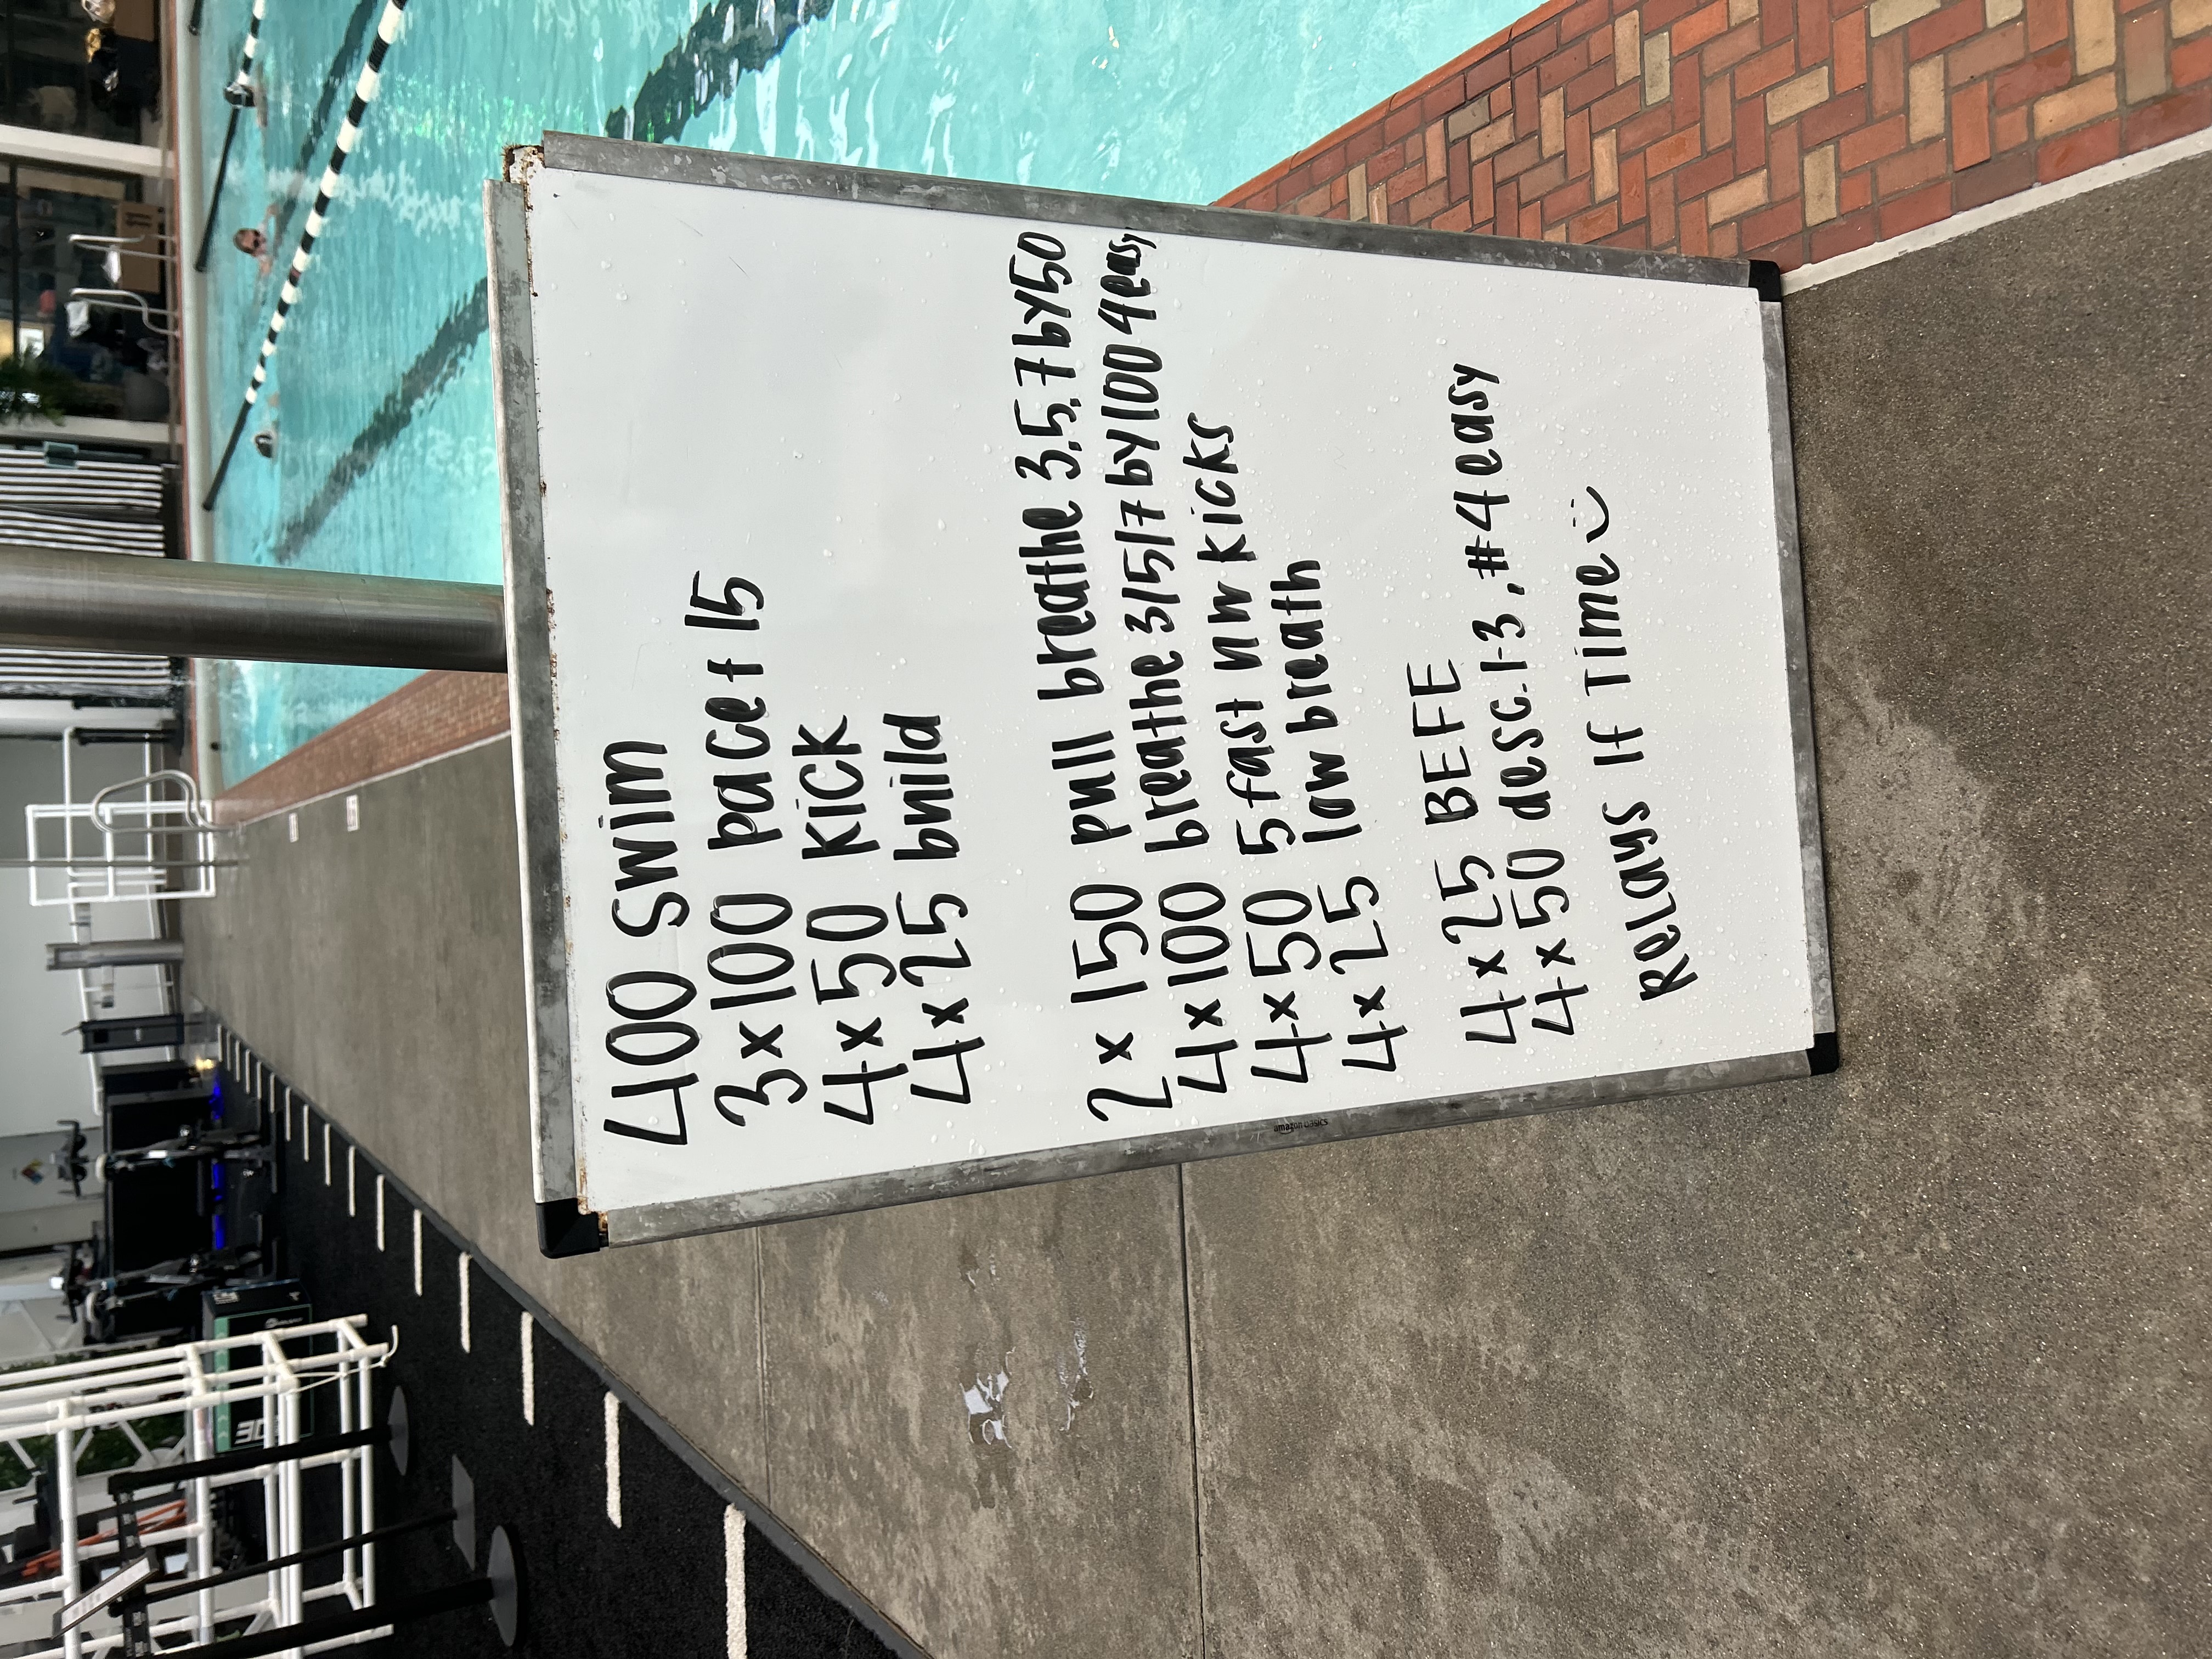 400 swim
3x100 pace + 15
4x50 kick
4x25 build
2x150 pull breathe 3.5.7 by 50
4x100 breathe 3/5/7 by 100 4easy
4x50 5 fast uw kicks
4x25 low breath
4x25 BEFE
4x50 desc 1-3, #4 easy
Relays if Time
amazon basics